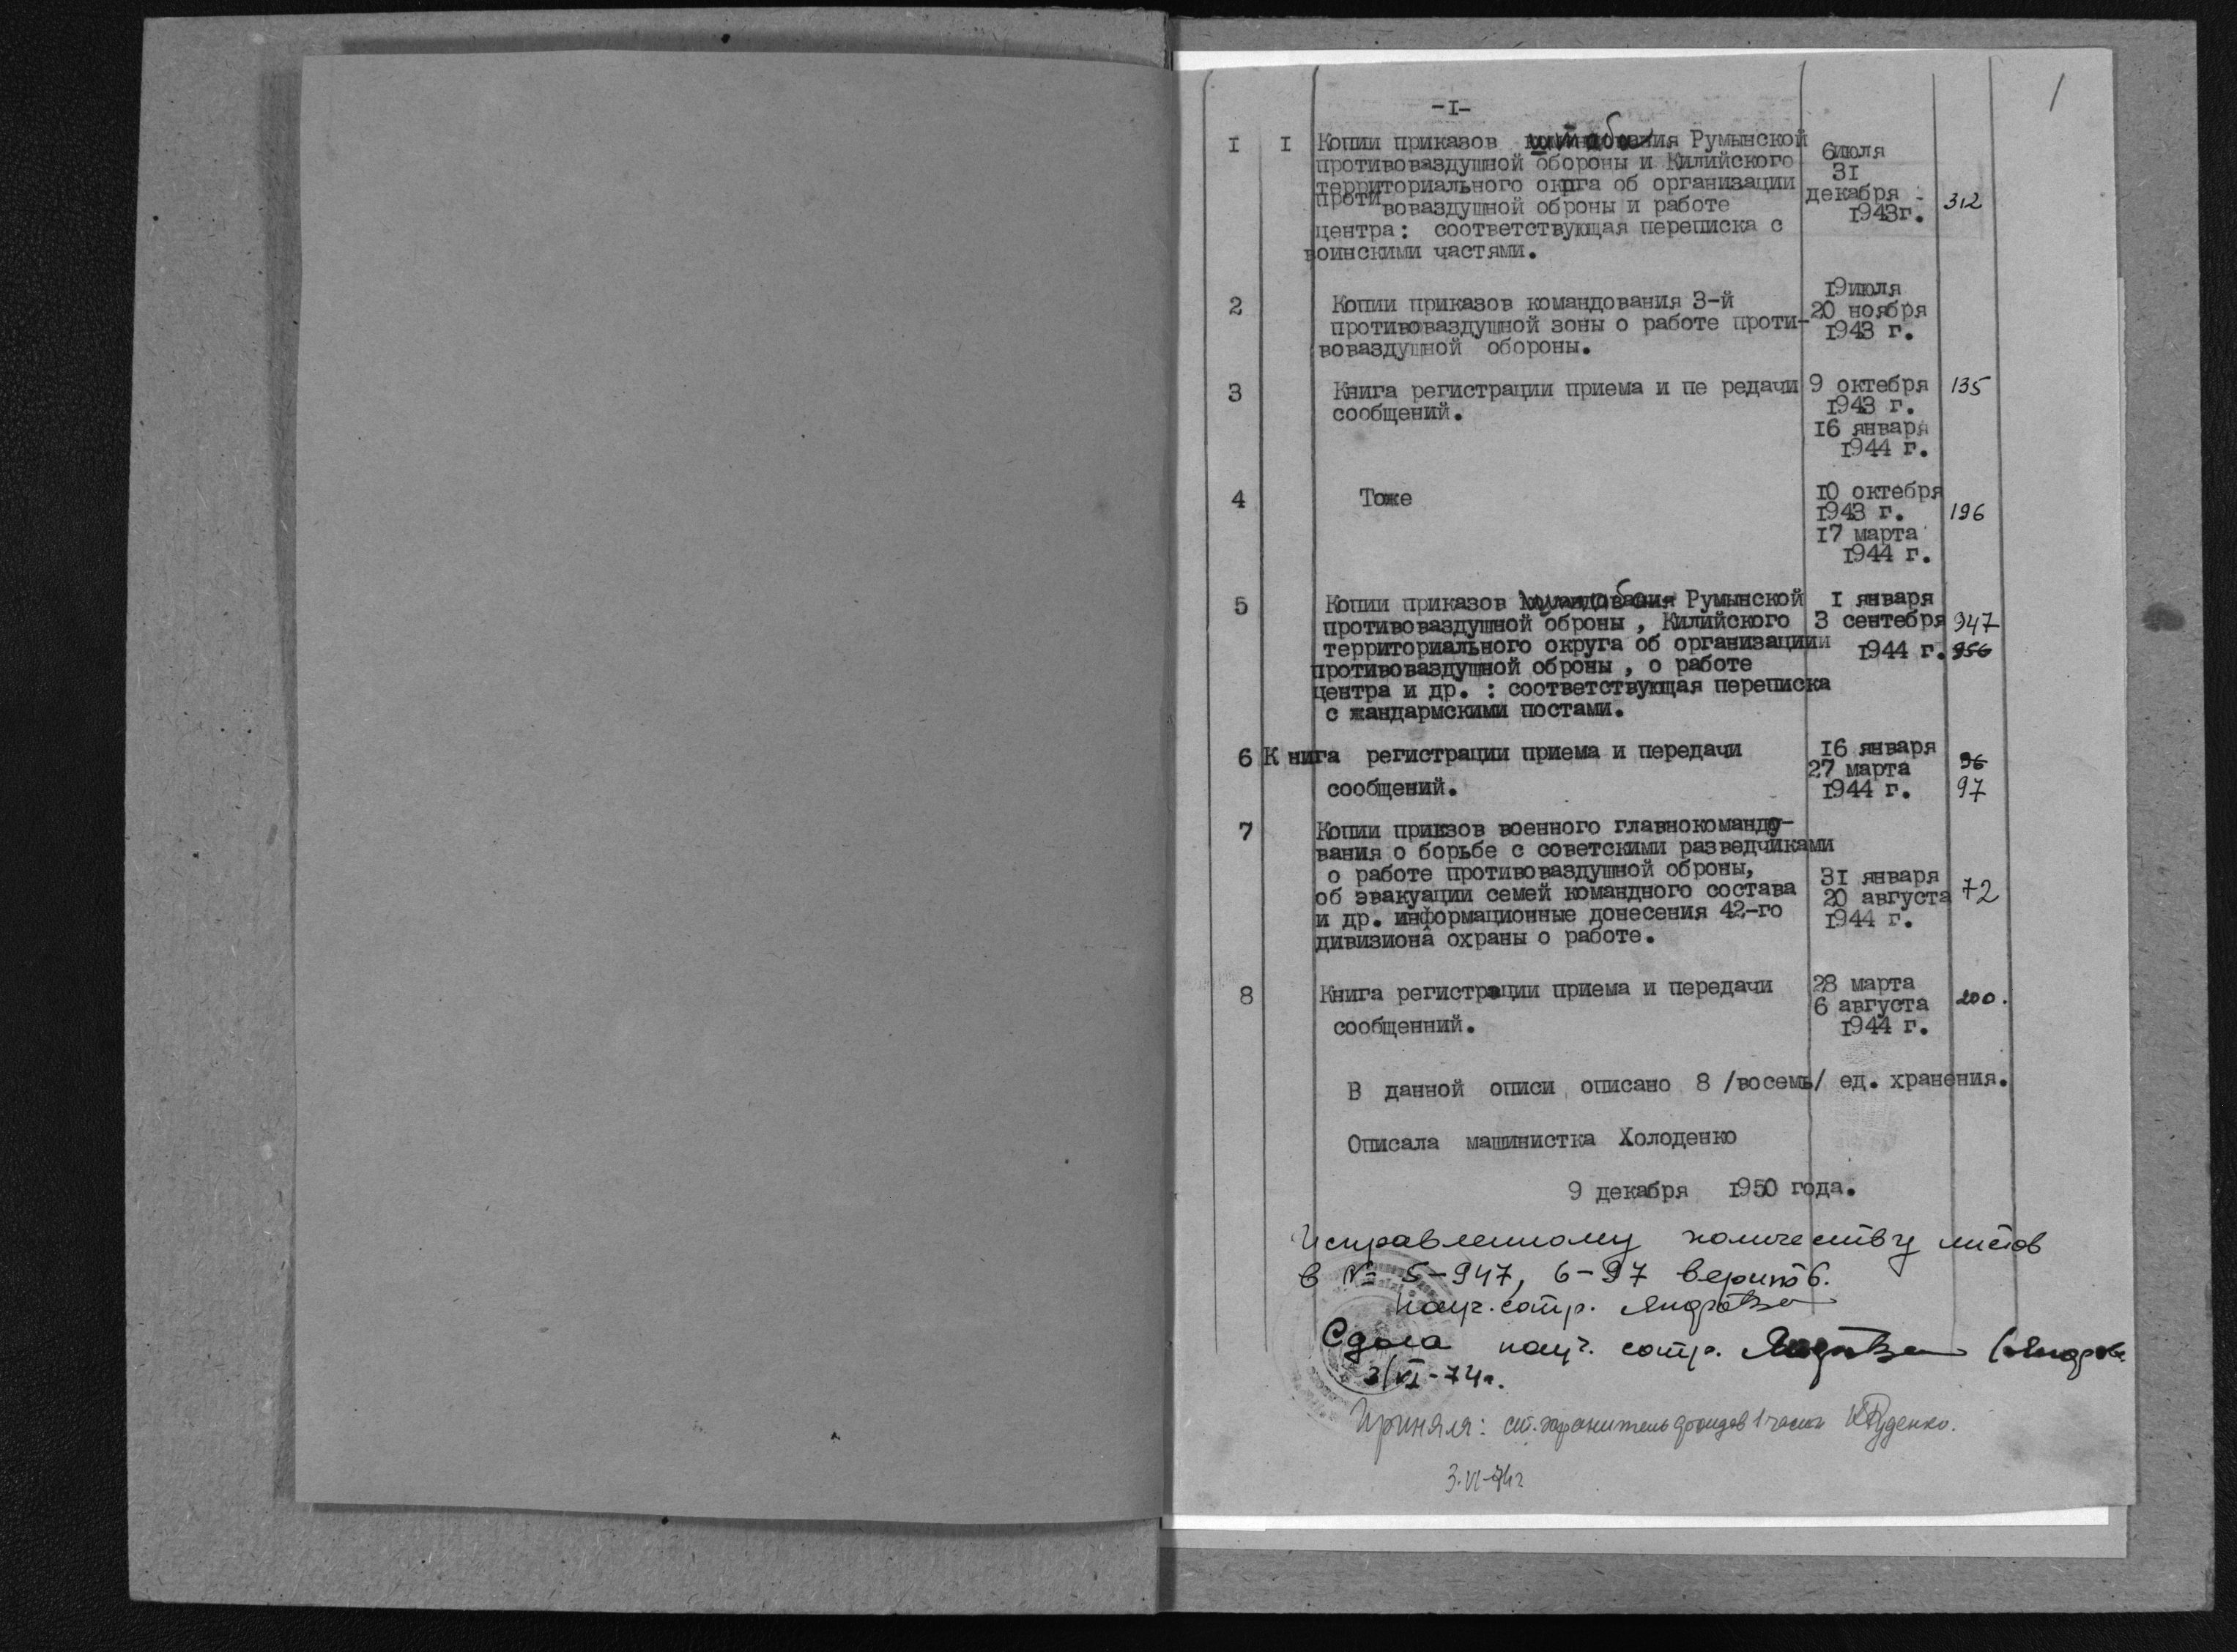 1
-I-
I I Копии приказов штаба Румынской
противовоздушной обороны и Килийского
территориального окрга об организации
проти вовоздушной оброны и работе
центра: соответствующая переписка с
воинскими частями.
6июля
31
декабря
1943г.
312
2 Копии приказов командования 3-й
противовоздушной зоны о работе проти-
вовоздушной обороны.
19июля
20 ноября
1943 г.
3 Книга регистрации приема и пе редачи
сообщений.
9 октебря
1943 г.
16 января
1944 г.
135
4 Тоже
10 октебря
1943 г.
17 марта
1944 г.
196
5 Копии приказов Румынской
противовоздушной оброны, Килийского
территориального округа об организациии
противовоздушной оброны, о работе
центра и др. : соответствующая переписка
с жандармскими постами.
I января
3 сентебря
1944 г.
947
956
6 К нига регистрации приема и передачи
сообщений.
16 января
27 марта
1944 г.
96
97
7 Копии прикзов военного главнокоманду-
вания о борьбе с советскими разведчиками
о работе противовоздушной оброны,
об эвакуации семей командного состава
и др. информационные донесения 42-го
дивизиона охраны о работе.
31 января
20 августа
1944 г.
72
8 Книга регистрации приема и передачи
сообщенний.
28 марта
6 августа
1944 г.
200.
В данной описи описано 8 /восемь/ ед. хранения.
Описала машинистка Холоденко
9 декабря 1950 года.
Исправленному количеству листов
в № 5-947, 6-97 верить.
науч. сотр.
Сдала науч. сотр.
3/VI-74г.
Приняла: ст. хранитель фондов Руденко.
3.VI-74г